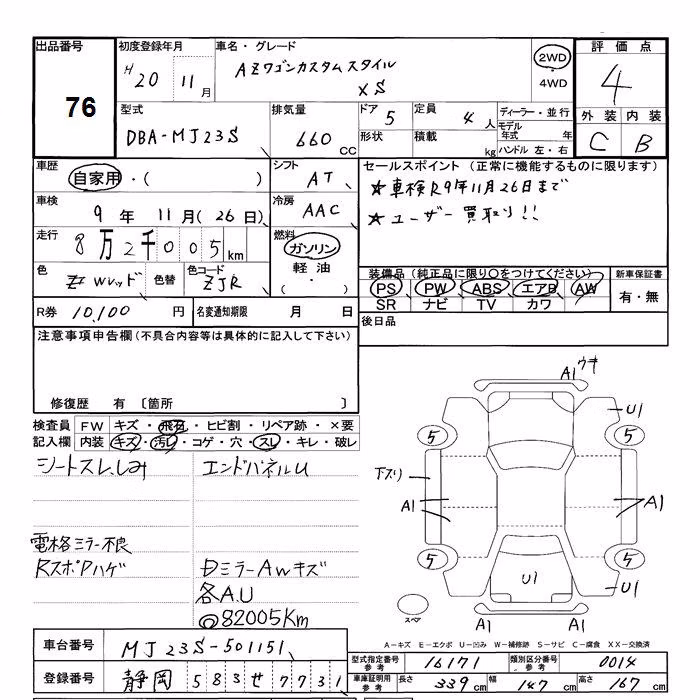 出品番号 初度登録年月 車名・グレード 評価点
76 H 20 11月 AZワゴンカスタムスタイル 2WD 4
XS 4WD
型式 排気量 ドア 5 定員 4人 ディーラー・並行 外装 内装
DBA-MJ23S 660 CC 形状 積載 kg モデル年式 年 C B
ハンドル 左・右
車歴 シフト セールスポイント (正常に機能するものに限ります)
自家用・( ) AT ★車検R9年11月26日まで
車検 冷房 ★ユーザー買取り!!
9年 11月(26日) AAC
走行 燃料
8万2千005km ガソリン
色 色替 色コード 軽油 装備品(純正品に限り○をつけてください) 新車保証書
レッド ZJR ( ・ ) PS PW ABS エアB AW 有・無
SR ナビ TV カワ
R券 10,100 円 名変通知期限 月 日 後日品
注意事項申告欄(不具合内容等は具体的に記入して下さい)
修復歴 有 〔箇所 〕
検査員 FW キズ・飛石・ヒビ割・リペア跡・×要
記入欄 内装 キズ・汚レ・コゲ・穴・スレ・キレ・破レ
シートスレ、しみ エンドパネルU
電格ミラー不良
RスポPハゲ DミラーAwキズ
各A.U
◎82005Km
A1 ウキ
U1
5 5
下スリ
A1 A1
5 5
U1 U1
スペア A1 A1
A-キズ E-エクボ U-凹み W-補修跡 S-サビ C-腐食 XX-交換済
車台番号 MJ23S-501151 型式指定番号 参考 16171 類別区分番号 参考 0014
登録番号 静岡 583 せ 7731 車庫証明用 参考 長さ 339cm 幅 147cm 高さ 167cm